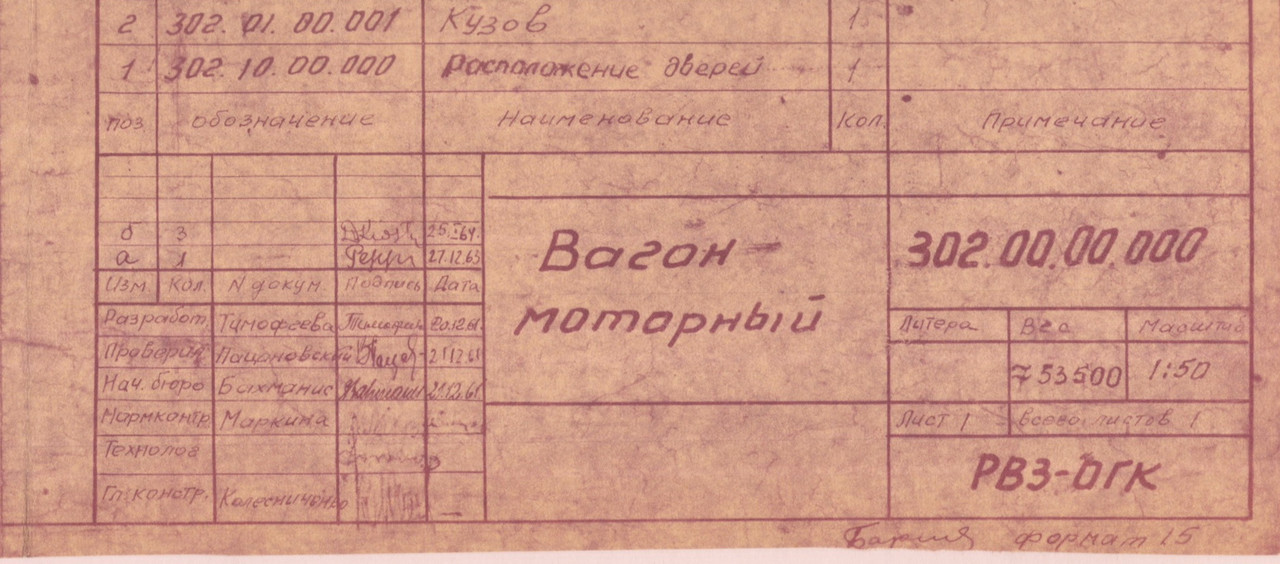 2 302.01.00.001 Кузов 1
1 302.10.00.000 Расположение дверей 1
поз. обозначение Наименование Кол. Примечание
б 3 25.I.64.
а 1 27.12.63
Изм. Кол. N докум. Подпись Дата
Разработ. Тимофеева 20.12.61.
Проверил Пацановский 21.12.61
Нач. бюро Бахманис 21.12.61
Нормконтр. Маркина
Технолог
Гл. констр. Колесниченко
Вагон-
моторный
302.00.00.000
Литера Вес Масштаб
753500 1:50
Лист 1 всего листов 1
РВЗ-ОГК
формат 15